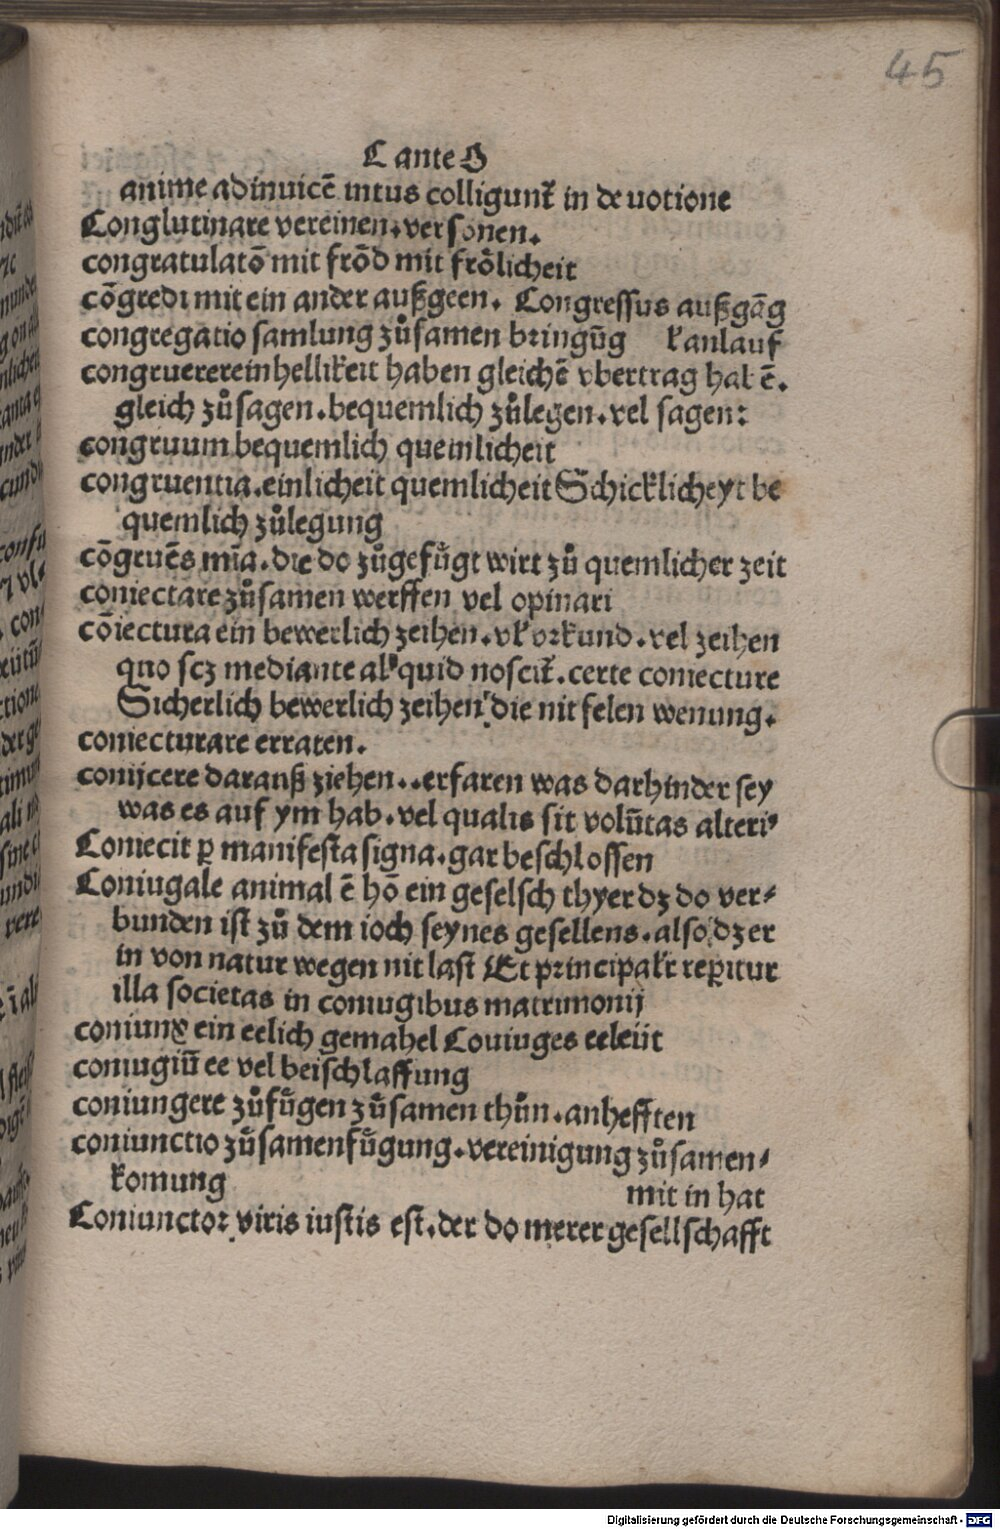 45
C ante O
anime adinuicē intus colligunt̄ in deuotione
Conglutinare vereinen.versonen.
congratulatō mit frȏd mit frȏlicheit
cōgredi mit ein ander außgeen. Congressus außgāg
congregatio samlung zůsamen bringūg kanlauf
congruererein hellikeit haben gleichē vbertrag habē.
gleich zůsagen.bequemlich zůlegen.vel sagen:
congruum bequemlich quemlicheit
congruentia.einlicheit quemlicheit Schicklicheyt be
quemlich zůlegung
cōgruēs mīa.die do zůgefůgt wirt zů quemlicher zeit
coniectare zůsamen werffen vel opinari
cōiectura ein bewerlich zeihen. vrkund.vel zeihen
quo scz mediante aliquid noscit̄.certe coniecture
Sicherlich bewerlich zeihen die nit felen wenung.
coniecturare erraten.
conijcere daranß ziehen..erfaren was darhinder sey
was es auf ym hab.vel qualis sit volūtas alteri9
Coniecit ꝑ manifesta signa.gar beschlossen
Coniugale animal ē hō ein geselsch thyer dz do ver⸗
bunden ist zů dem ioch seynes gesellens.also dz er
in von natur wegen nit last Et principalr̄ reꝑitur
illa societas in coniugibus matrimonij
coniunx ein eelich gemahel Couiuges eeleüt
coniugiū ee vel beischlaffung
coniungere zůfůgen zůsamen thůn.anhefften
coniunctio zůsamenfůgung.vereinigung zůsamen⸗
komung mit in hat
Coniunctor viris iustis est.der do merer gesellschafft
Digitalisierung gefördert durch die Deutsche Forschungsgemeinschaft - DFG